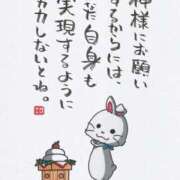 神様にお願い
するからには、
自身も
実現するように
努力しないとね。